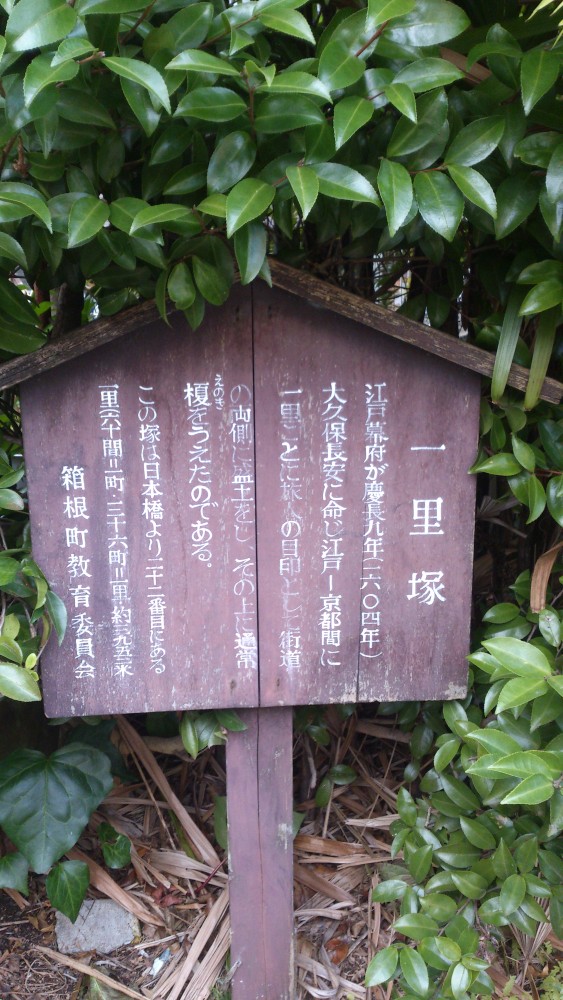 一里塚
江戸幕府が慶長九年(一六〇四年)
大久保長安に命じ江戸ー京都間に
一里ごとに旅人の目印として街道
の両側に盛土をし その上に通常
えのき
榎をうえたのである。
この塚は日本橋より二十二番目にある
一里(六十間=町・三十六町=里・約 米
箱根町教育委員会